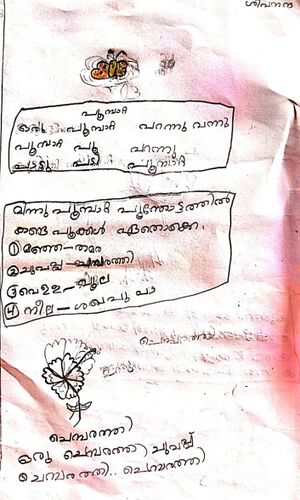 ശിവനന്ദ
പൂമ്പാറ്റ
ഒരു പൂമ്പാറ്റ പറന്നു വന്നു
പൂമ്പാറ്റ പൂ പറന്നു
പാട്ടു പാടി പൂമ്പാറ്റ
മിന്നു പൂമ്പാറ്റ പൂന്തോട്ടത്തിൽ
കണ്ട പൂക്കൾ ഏതൊക്കെ
① മഞ്ഞ - താമര
② ചുവപ്പ് - ചെമ്പരത്തി
③ വെള്ള - മുല്ല
④ നീല - ശംഖുപു
ചെമ്പരത്തി
ഒരു ചെമ്പരത്തി ചുവപ്പ്
ചെമ്പരത്തി.. ചെമ്പരത്തി